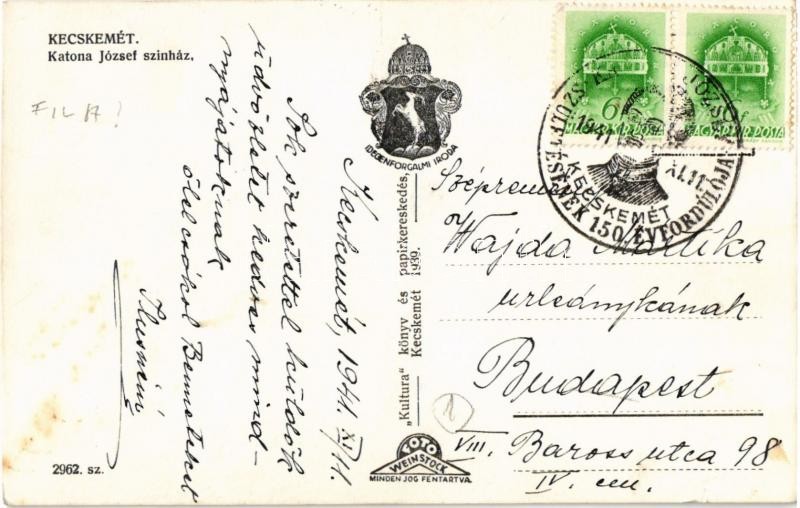 KECSKEMÉT.
Katona József szinház,
FILA?
2962. sz.
Kecskemét, 1941. XI/11.
Sok szeretettel küldök
üdvözletet kedves mind-
nyájatoknak
ölel csókol Benneteket
IDEGENFORGALMI IRODA
„Kultura" könyv és papirkereskedés,
Kecskemét 1939.
FOTO
WEINSTOCK
MINDEN JOG FENTARTVA.
6f
MAGYAR KIR. POSTA
MAGYAR KIR. POSTA
1941 XI.11.
KECSKEMÉT
SZÜLETÉSÉNEK 150 ÉVFORDULÓJA
Wajda Mártika
urleánykának
Budapest
VIII. Baross utca 98
IV. em.
1